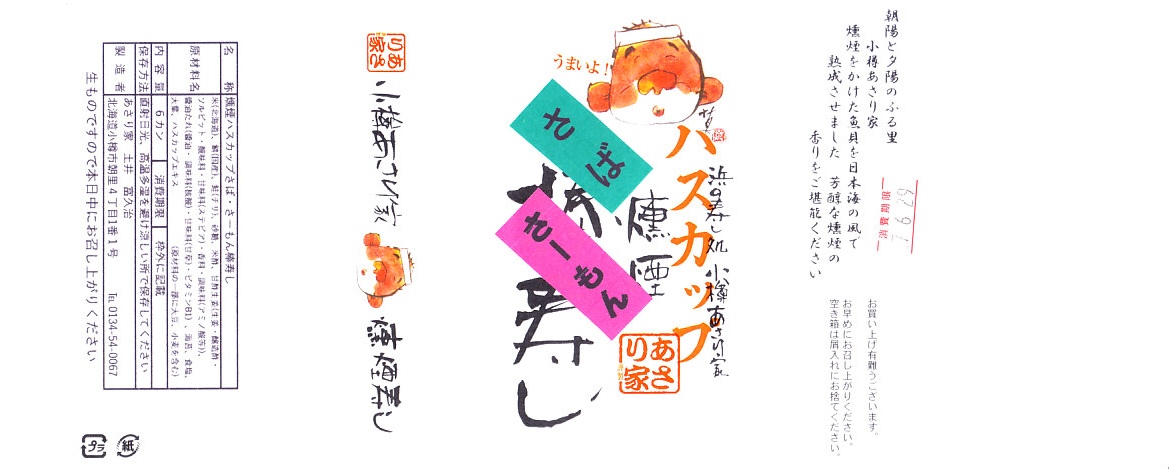 朝陽と夕陽のふる里
小樽あさり家
燻煙をかけた魚貝を日本海の風で
熟成させました 芳醇な燻煙の
香りをご堪能ください
消費期限
お買い上げ有難うございます。
お早めにお召し上がりください。
空き箱は屑入れにお捨てください。
うまいよ!
浜の寿し処 小樽あさり家
ハスカップ
燻煙
さば
さーもん
棒寿し
あさり家
あさり家
小樽あさり家
燻煙寿し
名称 燻煙ハスカップさば・さーもん棒寿し
原材料名 米(北海道)、鯖(国産)、鮭(チリ)、砂糖、米酢、甘酢生姜(生姜・醸造酢・
ソルビット・酸味料・甘味料(ステビア)・香料・調味料(アミノ酸等))、
醤油たれ(醤油・調味料(核酸)・甘味料(甘草)・ビタミンB1)、海苔、食塩、
大葉、ハスカップエキス (原材料の一部に大豆、小麦を含む)
内容量 6カン 消費期限 枠外に記載
保存方法 直射日光、高温多湿を避け涼しい所で保存してください
製造者 あさり家 土井 富久治
北海道小樽市朝里4丁目1番1号 TEL 0134-54-0067
生ものですので本日中にお召し上がりください
プラ
紙